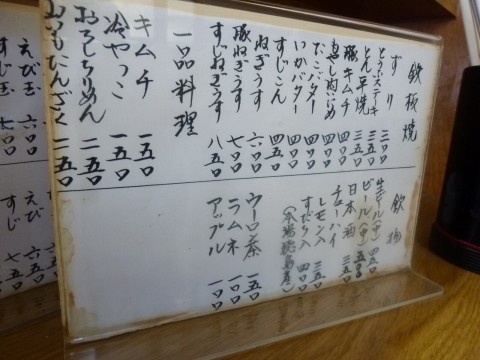 鉄板焼
とうふステーキ 三〇〇
とん平焼 三五〇
豚キムチ 三五〇
もやし肉いため 四〇〇
たこバター 四〇〇
いかバター 四〇〇
すじこん 四五〇
ねぎうす
豚ねぎうす 六〇〇
すじねぎうす 七〇〇
八五〇
一品料理
キムチ 一五〇
冷やっこ 一五〇
おろしちりめん 二五〇
山いもたんざく 二五〇
飲物
生ビール(中) 四五〇
ビール(中) 五〇〇
日本酒 三五〇
チューハイ
レモン入 三五〇
すだち入 四〇〇
(本場徳島産)
ウーロン茶 一五〇
ラムネ 一〇〇
アップル 一〇〇
えび玉
すじ玉 七〇〇
えび 六五〇
すじ 七五〇